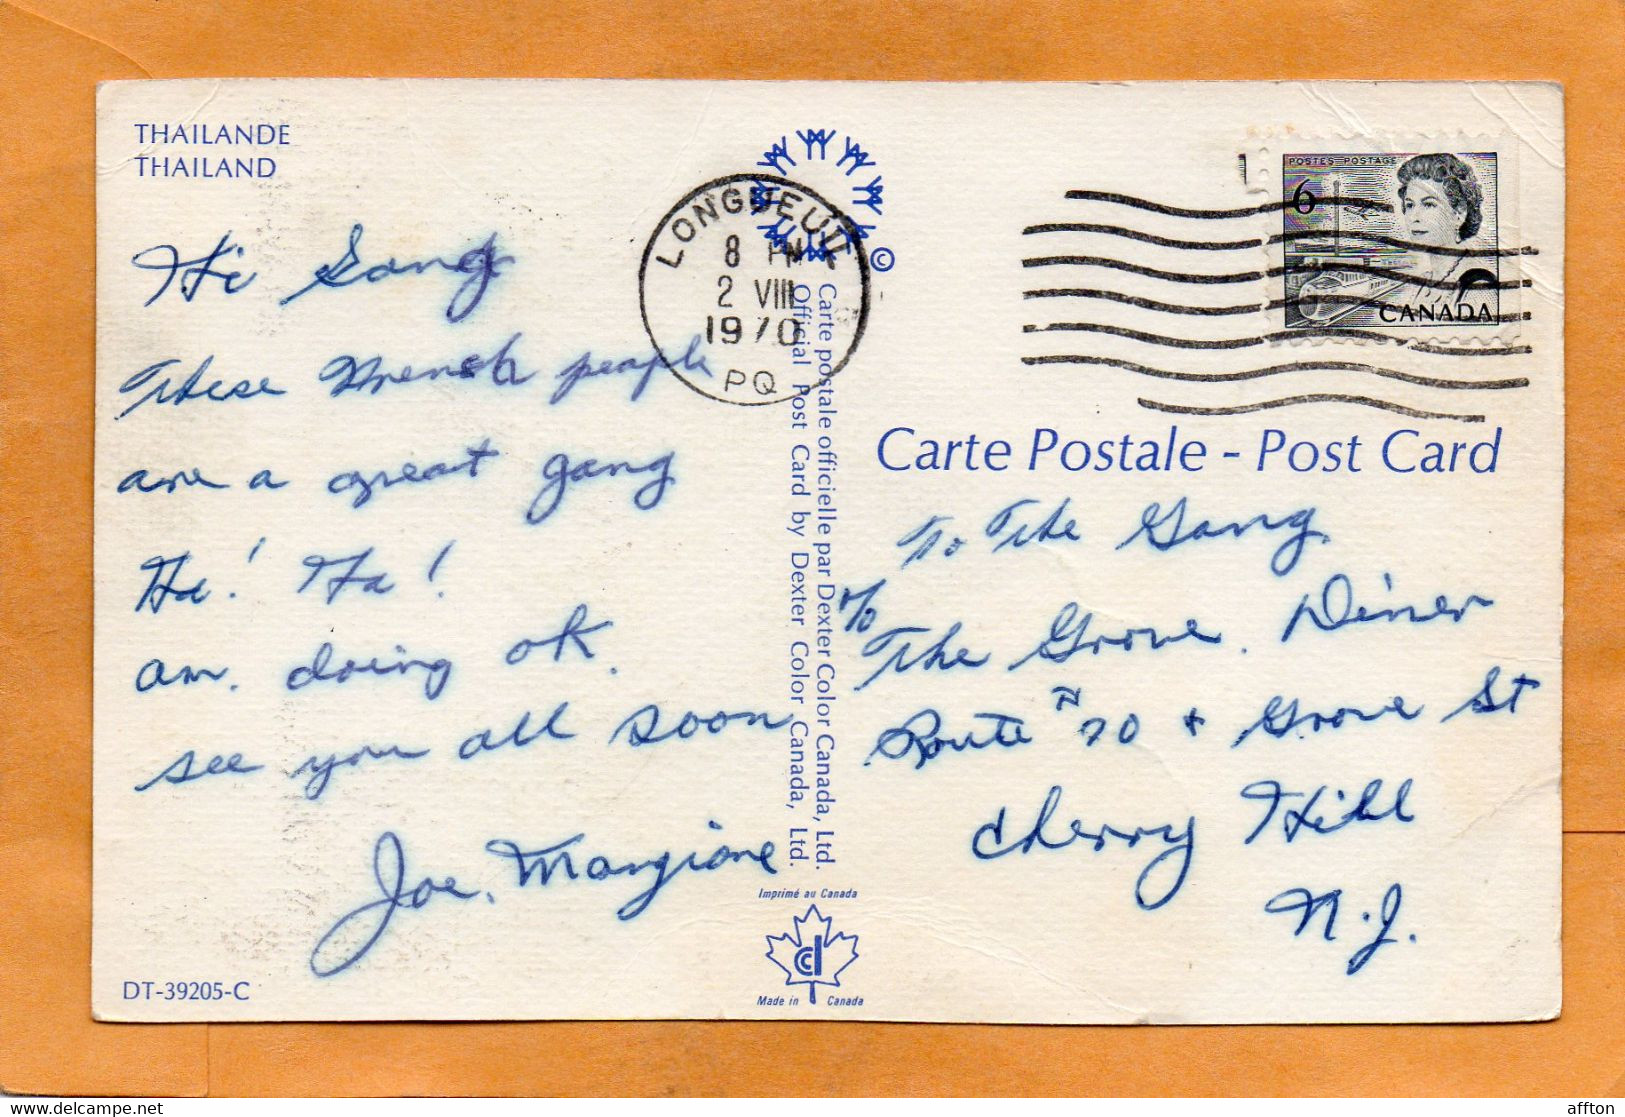 THAILANDE
THAILAND
Hi Gang
These French people
are a great gang
Ha! Ha!
am. doing ok.
see you all soon
Joe. Mangione
DT-39205-C
LONGUEUIL
8 PM
2 VIII
1970
PQ
©
Carte postale officielle par Dexter Color Canada, Ltd.
Official Post Card by Dexter Color Canada, Ltd.
Imprimé au Canada
cd
Made in Canada
POSTES POSTAGE
6
CANADA
Carte Postale - Post Card
To The Gang
c/o
The Grove Diner
Route 70 & Grove St
Cherry Hill
N.J.
affton